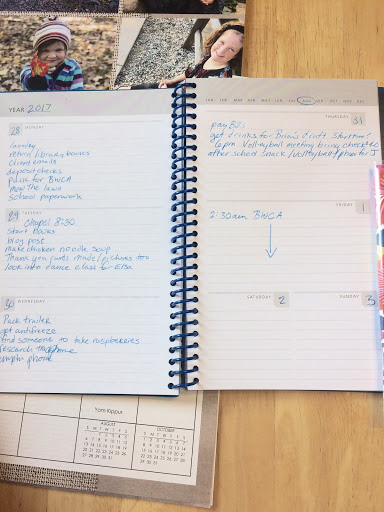 YEAR 2017
28 MONDAY
laundry
return library books
client emails
deposit checks
pack for BWCA
mow the lawn
school paperwork
29 TUESDAY
Chapel 8:30
start books
blog post
make chicken noodle soup
Thank you cards made/pictures too
look into dance class for Elsa
30 WEDNESDAY
Pack trailer
get antifreeze
find someone to take raspberries
research
phone
JAN FEB MAR APR MAY JUN JUL AUG SEP OCT NOV DEC
THURSDAY 31
pay Bills
get drinks for Brian's draft
6pm Volleyball meeting bring check
after school snack/volleyball/phone for J
FRIDAY 1
2:30am BWCA
SATURDAY 2 SUNDAY 3
Yom Kippur
AUGUST OCTOBER
S M T W T F S S M T W T F S